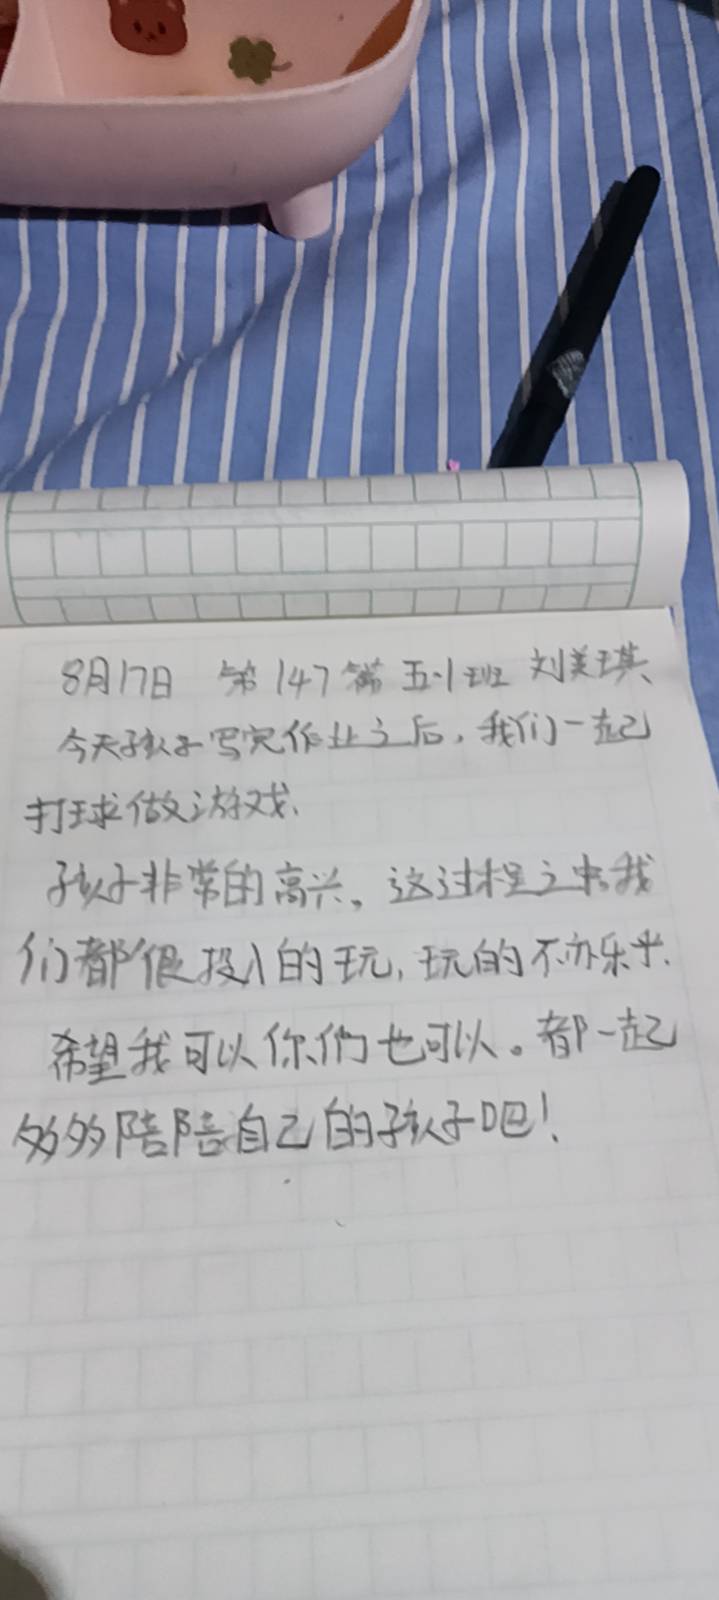 8月17日 第147篇 五1班 刘美琪、
今天孩子写完作业之后,我们一起
打球做游戏、
孩子非常的高兴。这过程之中我
们都很投入的玩,玩的不亦乐乎.
希望我可以你們也可以。都一起
多多陪陪自己的孩子吧!